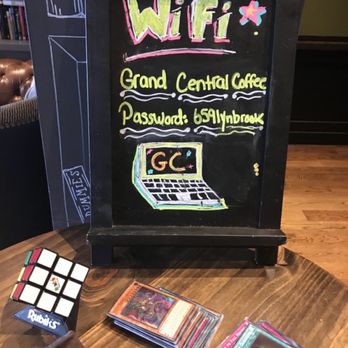 WiFi
Grand Central Coffee
Password: 659lynbrook
GC
DUMMIES
Rubik's